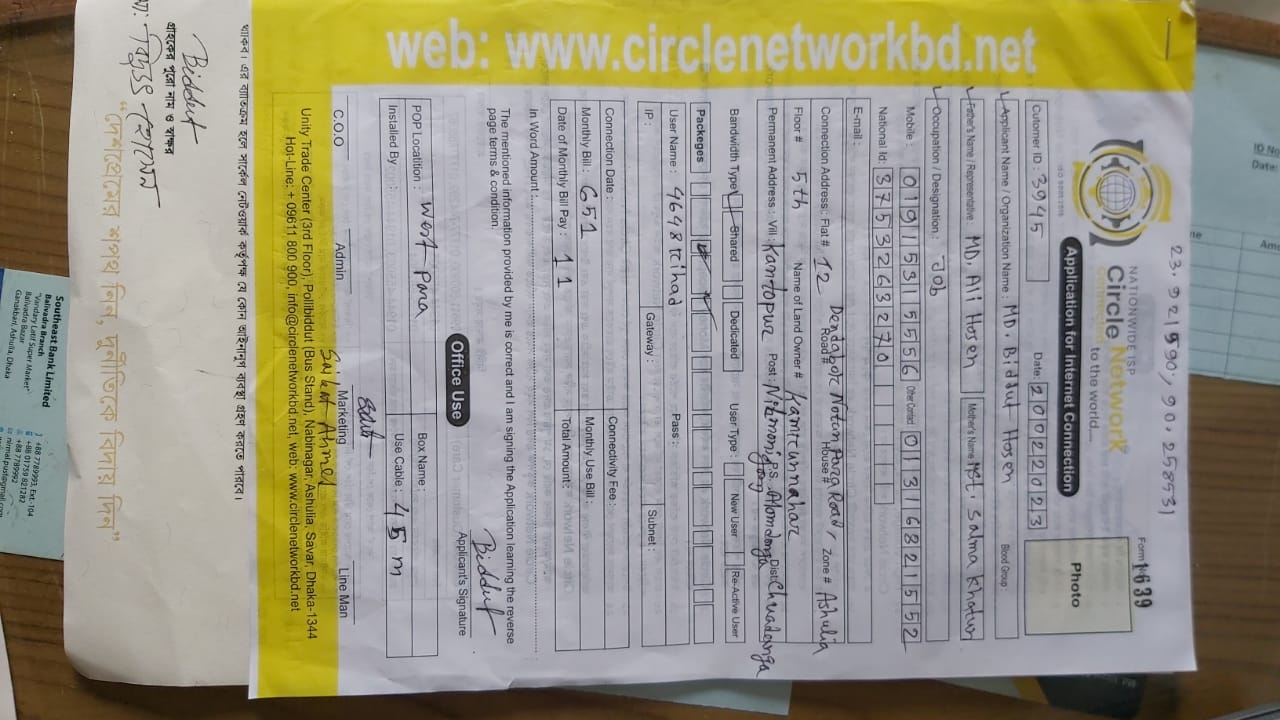 23.921590, 90.258531
Form No
1639
NATIONWIDE ISP
Circle Network
Connecting to the world...
Application for Internet Connection
Photo
Cutomer ID : 3945
Date: 20022023
Applicant Name / Organization Name : MD. Biddut Hosen
Blood Group :
Father's Name / Representative : MD. Ali Hosen
Mother's Name : Mst. Salma Khatun
Occupation / Designation : Job
Mobile : 01915315556
Other Contact 01316821552
National Id: 3753263270
E-mail :
Connection Address : Flat # 12 Road # Dendabor Notun Para Road, House # Zone # Ashulia
Floor # 5th Name of Land Owner # Kamrunnahar
Permanent Address : Vill : Kantopur Post : Nilmonigong P.S. Alomdanga Dist: Chuadanga
Bandwidth Type : Shared Dedicated User Type : New User Re-Active User
Packeges
User Name : 4648 Rihad Pass :
IP : Gateway : Subnet :
Connection Date : Connectivity Fee :
Monthly Bill : 651 Monthly Use Bill :
Date of Monthly Bill Pay : 11 Total Amount:
In Word Amount :
The mentioned information provided by me is correct and I am signing the Application learning the reverse
page terms & condition.
Biddut
Applicant's Signature
Office Use
POP Locatition : West para Box Name :
Installed By : Use Cable : 45 m
Saikat Ahmed
C.O.O Admin Marketing Line Man
Unity Trade Center (3rd Floor), Pollibiddut (Bus Stand), Nabinagar, Ashulia, Savar, Dhaka-1344
Hot-Line: + 09611 800 900, info@circlenetworkbd.net, web: www.circlenetworkbd.net
web: www.circlenetworkbd.net
থাকিব। এর ব্যতিক্রম হলে সার্কেল নেটওয়ার্ক কর্তৃপক্ষ যে কোন আইনানুগ ব্যবস্থা গ্রহণ করতে পারবে।
Biddut
গ্রাহকের পুরো নাম ও স্বাক্ষর
মো: বিদ্যুৎ হোসেন
“দেশপ্রেমের শপথ নিন, দুর্নীতিকে বিদায় দিন”
Southeast Bank Limited
Balivadra Branch
"Vandary Latif Super Market"
Balivadra Bazar
Ganakbari, Ashulia, Dhaka
+88 7789993, Ext.-104
+88 01755 821282
+88 7789992
ID No
Date: